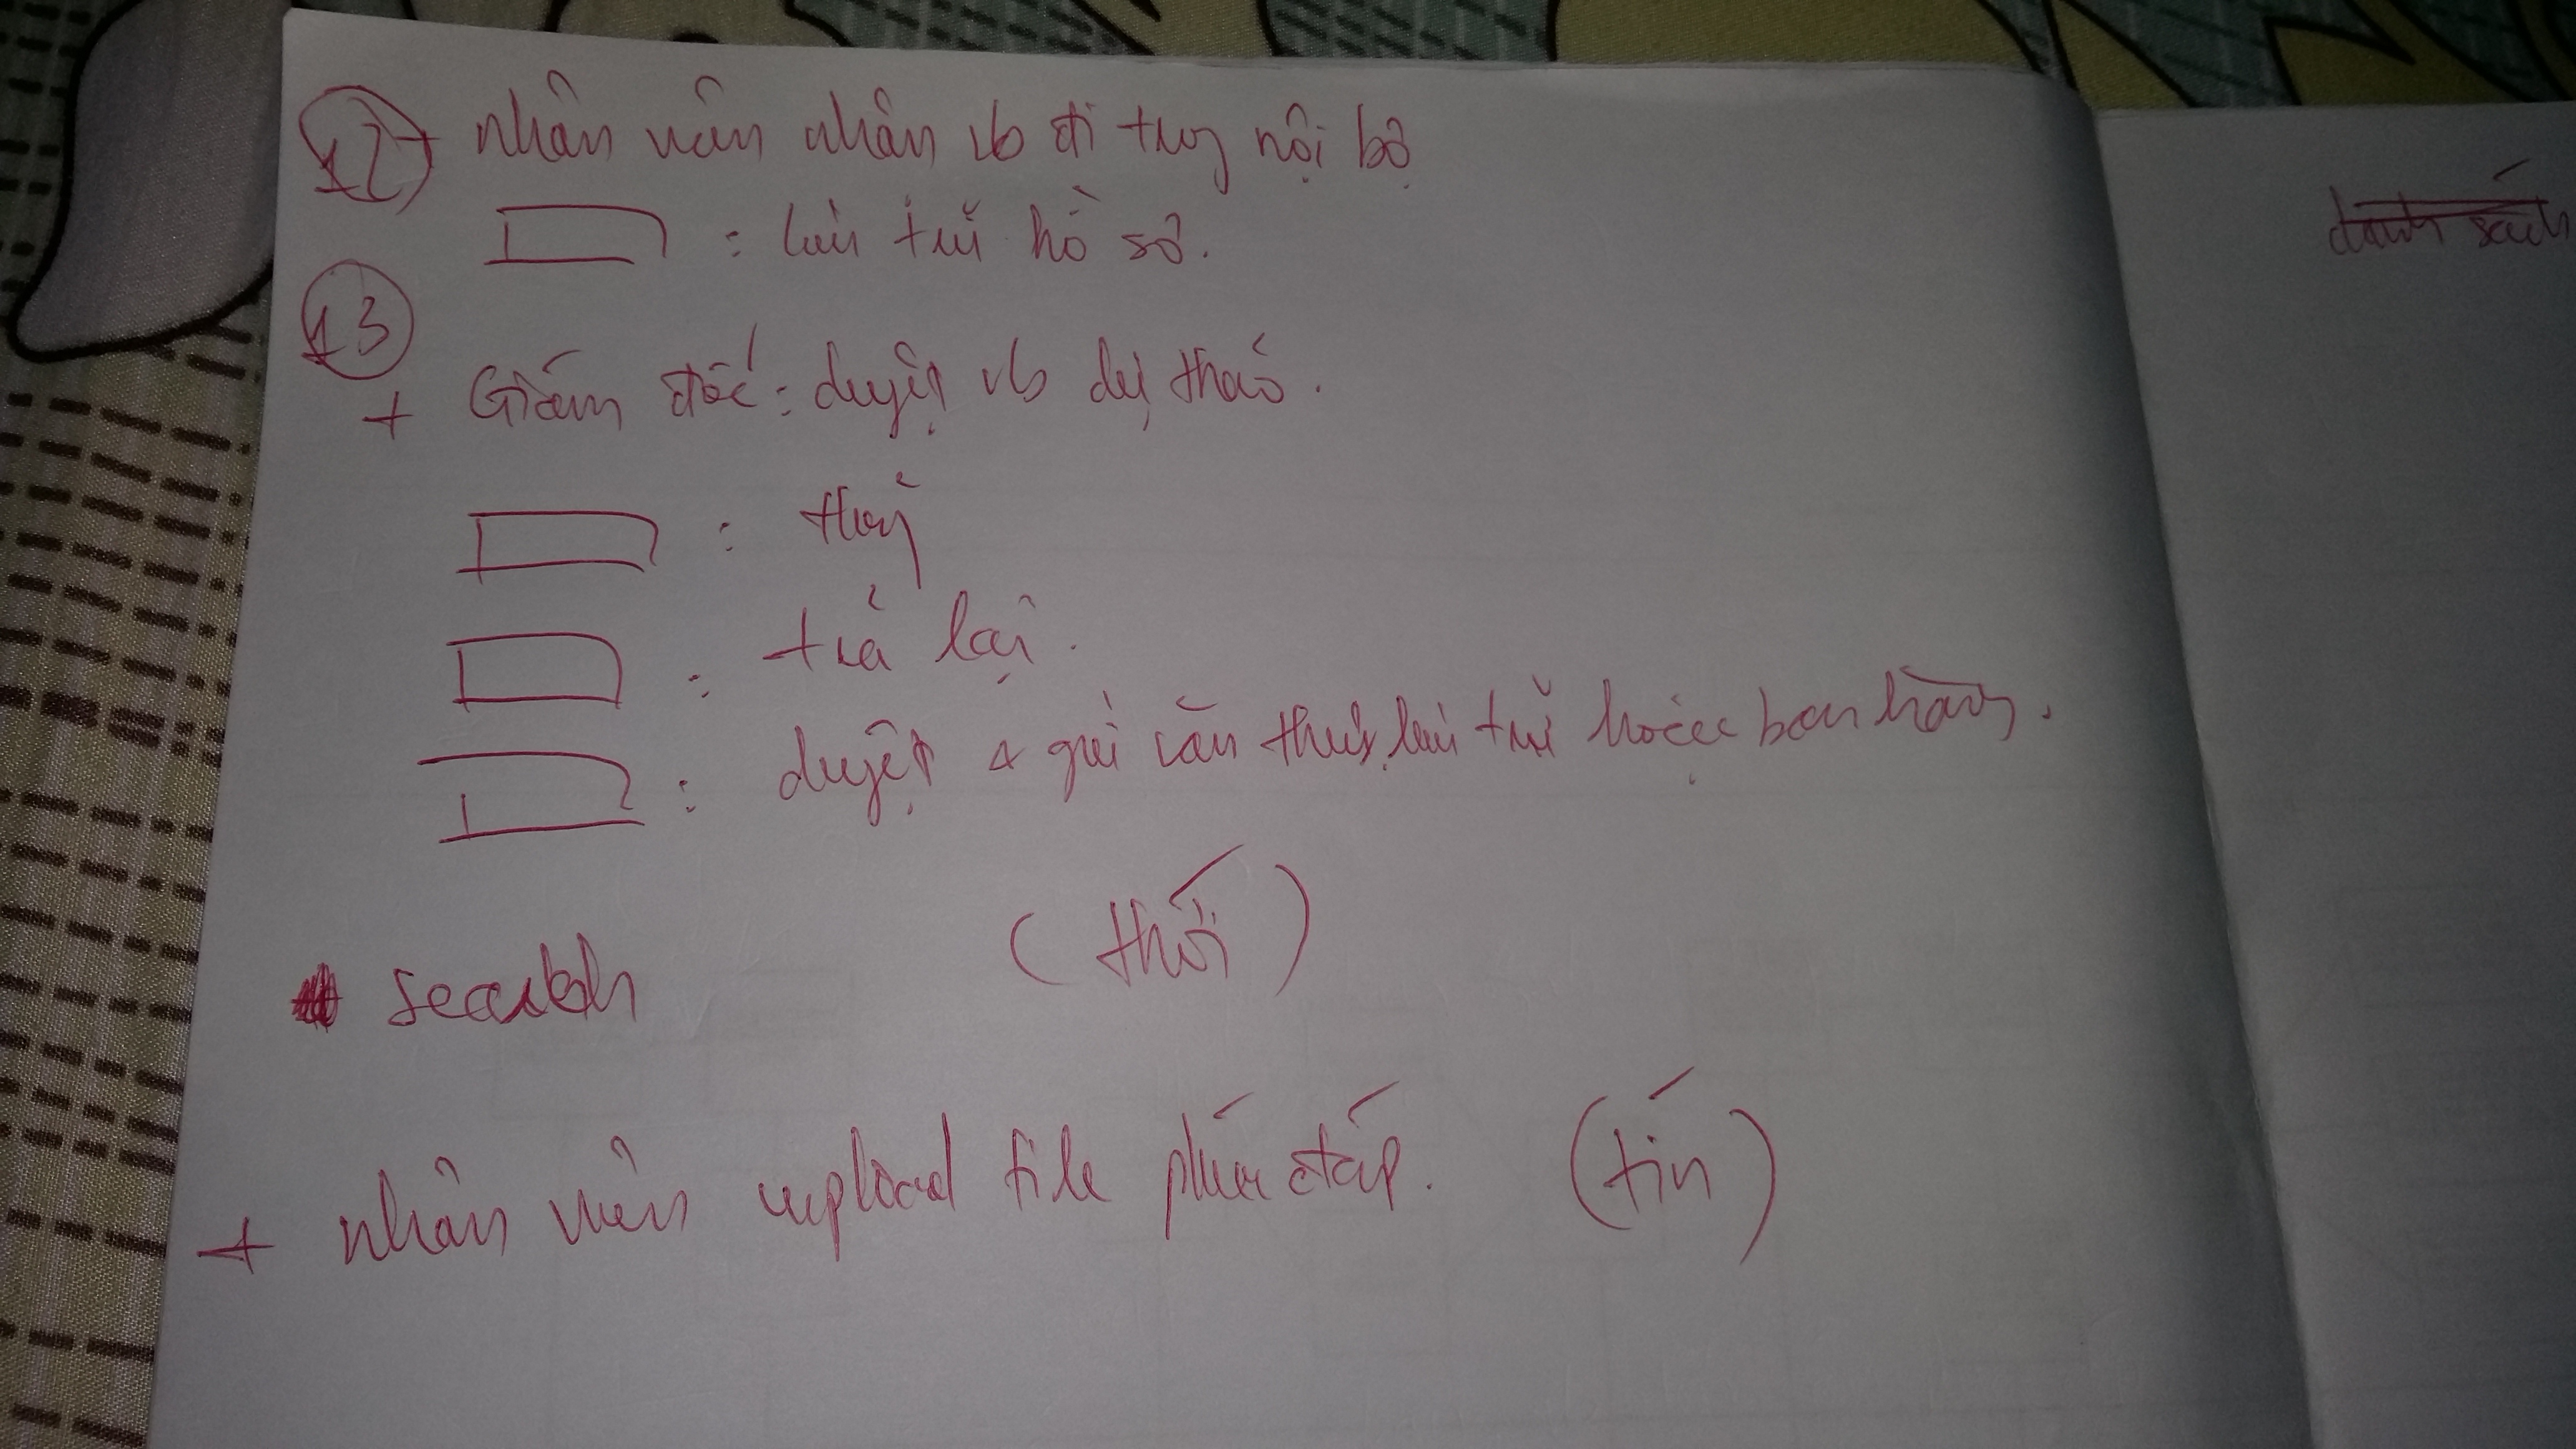 12 + nhân viên nhận vb đi trong nội bộ
: lưu trữ hồ sơ.
13
+ Giám đốc: duyệt vb dự thảo.
:
: trả lại.
: duyệt & gửi văn thư lưu trữ hoặc ban hành.
(thới)
search
+ nhân viên upload file phúc đáp. (tín)
danh sách